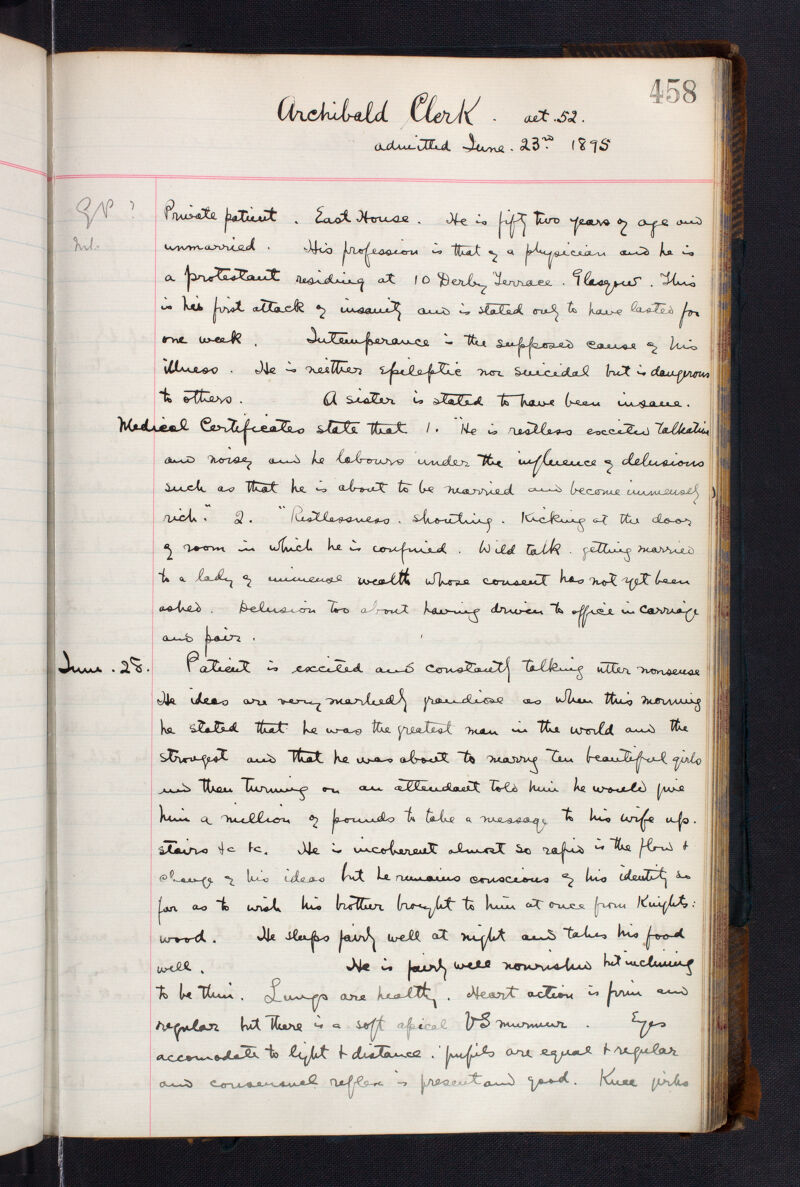 458
Archibald Clerk. aet. 52.
admitted June. 23rd 1895
GP ?
Private patient. East House. He is fifty two years of age and
unmarried. His profession is that of a physician and he is
a protestant residing at 10 Derby Terrace. Glasgow. This
is his first attack of insanity and is stated only to have lasted for
one week. Intemperance is the supposed cause of his
illness. He is neither epileptic nor suicidal but is dangerous
to others. A sister is stated to have been insane.
Medical Certificates state that 1. "He is restless excited talkative
and noisy and he labours under the influence of delusions
such as that he is about to be married and become immensely
rich." 2. "Restlessness. shouting. Kicking at the door
of room in which he is confined. Wild talk. getting married
to a lady of immense wealth whose consent has not yet been
asked. Delusion too about having driven to office in carriage
and pair.
June. 28. Patient is excited and constantly talking utter nonsense
He ideas are very markedly grandiose as when this morning
he stated that he was the greatest man in the world and the
strongest and that he was about to marry ten beautiful girls
and then turning on an attendant told him he would give
him a million of pounds to take a message to his wife up.
stairs &c &c. He is incoherent almost so rapid is the flow &
change of his ideas but he remains conscious of his identity so
far as to wish his brother brought to him at once from Knights:
wood. He sleeps fairly well at night and takes his food
well. He is fairly well nourished but inclining
to be thin. Lungs are healthy. Heart action is firm and
regular but there is a soft apical VS murmur. Eyes
accomodate to light & distance. pupils are equal & regular
and consensual reflex is present and good. Knee jerks